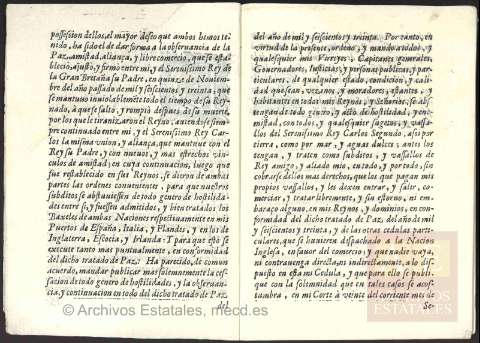 possession dellos, el mayor desseo que ambos hemos te-
nido, ha sido el de dar forma a la observancia de la
Paz, amistad, aliança, y libre comercio, que se esta-
bleciò, ajustò, y firmò entre mi, y el Serenissimo Rey de
la Gran Bretaña su Padre, en quinze de Noviem-
bre del año passado de mil y seiscientos y treinta, que
se mantuvo inviolablemẽte todo el tiempo de su Rey-
nado, à que se faltò, y rompiò despues de su muerte,
por los que le tiranizaron el Reyno, aviendose siem-
pre continuado entre mi, y el Serenissimo Rey Car-
los la misma union, y aliança, que mantuve con el
Rey su Padre, y con nuevos, y mas estrechos vincu-
los de amistad; en cuya continuacion, luego que
fue restablecido en sus Reynos, se dieron de ambas
partes las ordenes convenientes, para que nuestros
subditos se abstuviessen de todo genero de hostilida-
des entre si, y fuessen admitidos, y bien tratados los
Baxeles de ambas Naciones respectivamente en mis
Puertos de España, Italia, y Flandes, y en los de
Inglaterra, Escocia, y Irlanda: Y para que esto se
execute tanto mas puntualmente, en conformidad
del dicho tratado de Paz: Ha parecido, de comun
acuerdo, mandar publicar mas solemnemente la ces-
sacion de todo genero de hostilidades, y la observan-
cia, y continuacion en todo del dicho tratado de Paz
del
del año de mil y seiscientos y treinta. Por tanto, en
virtud de la presente, ordeno, y mando a todos, y
qualesquier mis Virreyes, Capitanes generales,
Governadores, Iusticias, y personas publicas, y par-
ticulares, de qualquier estado, condicion, y cali-
dad que sean, vezinos, y moradores, estantes, y
habitantes en todos mis Reynos, y Señorios, se abs-
tengan de todo genero, y acto de hostilidad, y ene-
mistad, con todos, y qualesquier sugetos, y vassa-
llos del Serenissimo Rey Carlos Segundo, assi por
tierra, como por mar, y aguas dulces, antes los
tengan, y traten como subditos, y vassallos de
Rey amigo, y aliado mio, en todo, y por todo, sin
cobrarseles del mas derechos, que los que pagan mis
propios vassallos, y les dexen entrar, y salir, co-
merciar, y tratar libremente, y sin estorvo, ni em-
baraço alguno, en mis Reynos, y dominios, en con-
formidad del dicho tratado de Paz, del año de mil
y seiscientos y treinta, y de las otras cedulas parti-
culares, que se huvieren despachado a la Nacion
Inglesa, en favor del comercio, y que nadie vaya,
ni contravenga directa, ni indirectamente, a lo dis-
puesto en esta mi Cedula, y que para ello se publi-
que con la solemnidad que en tales casos se acos-
tumbra, en mi Corte à veinte del corriente mes de
Se-
© Archivos Estatales, mecd.es
ARCHIVOS
ESTATALES